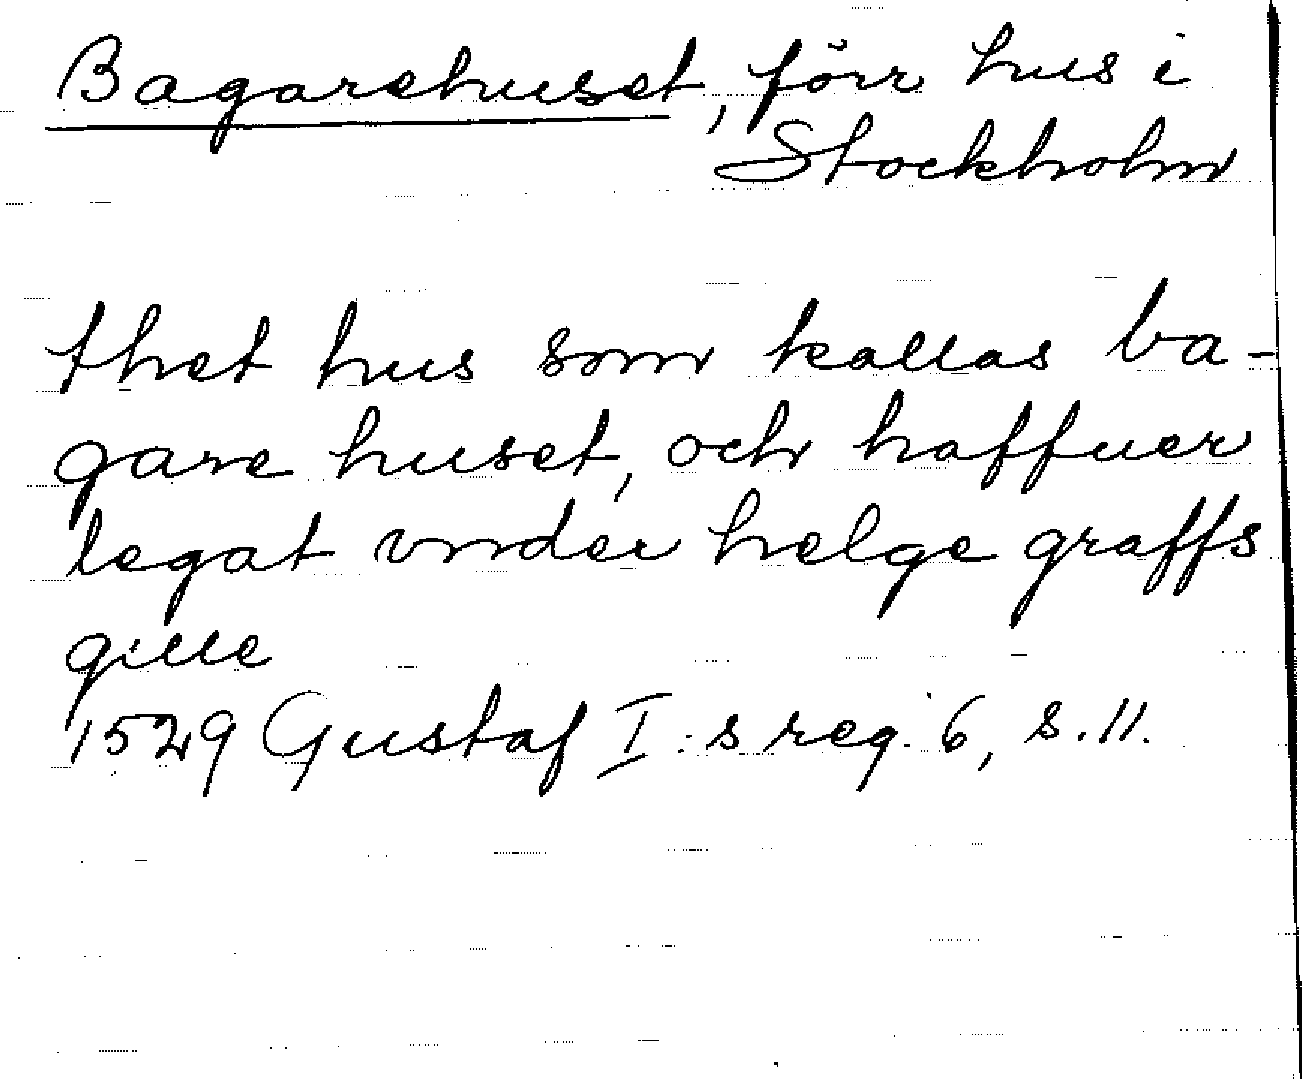 Bagarehuset, förr hus i
Stockholm
thet hus som kallas ba-
gare huset, och haffuer
legat vnder helge graffs
gille
1529 Gustaf I:s reg. 6, s. 11.